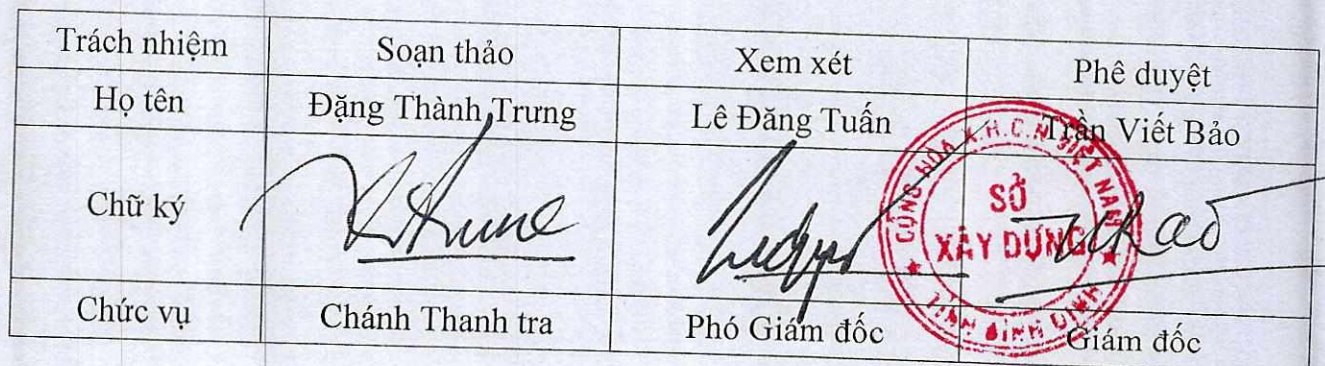 Trách nhiệm Soạn thảo Xem xét Phê duyệt
Họ tên Đặng Thành Trưng Lê Đăng Tuấn Trần Viết Bảo
Chữ ký
CỘNG HÒA X.H.C.N VIỆT NAM
SỞ
XÂY DỰNG
TỈNH BÌNH ĐỊNH
Chức vụ Chánh Thanh tra Phó Giám đốc Giám đốc